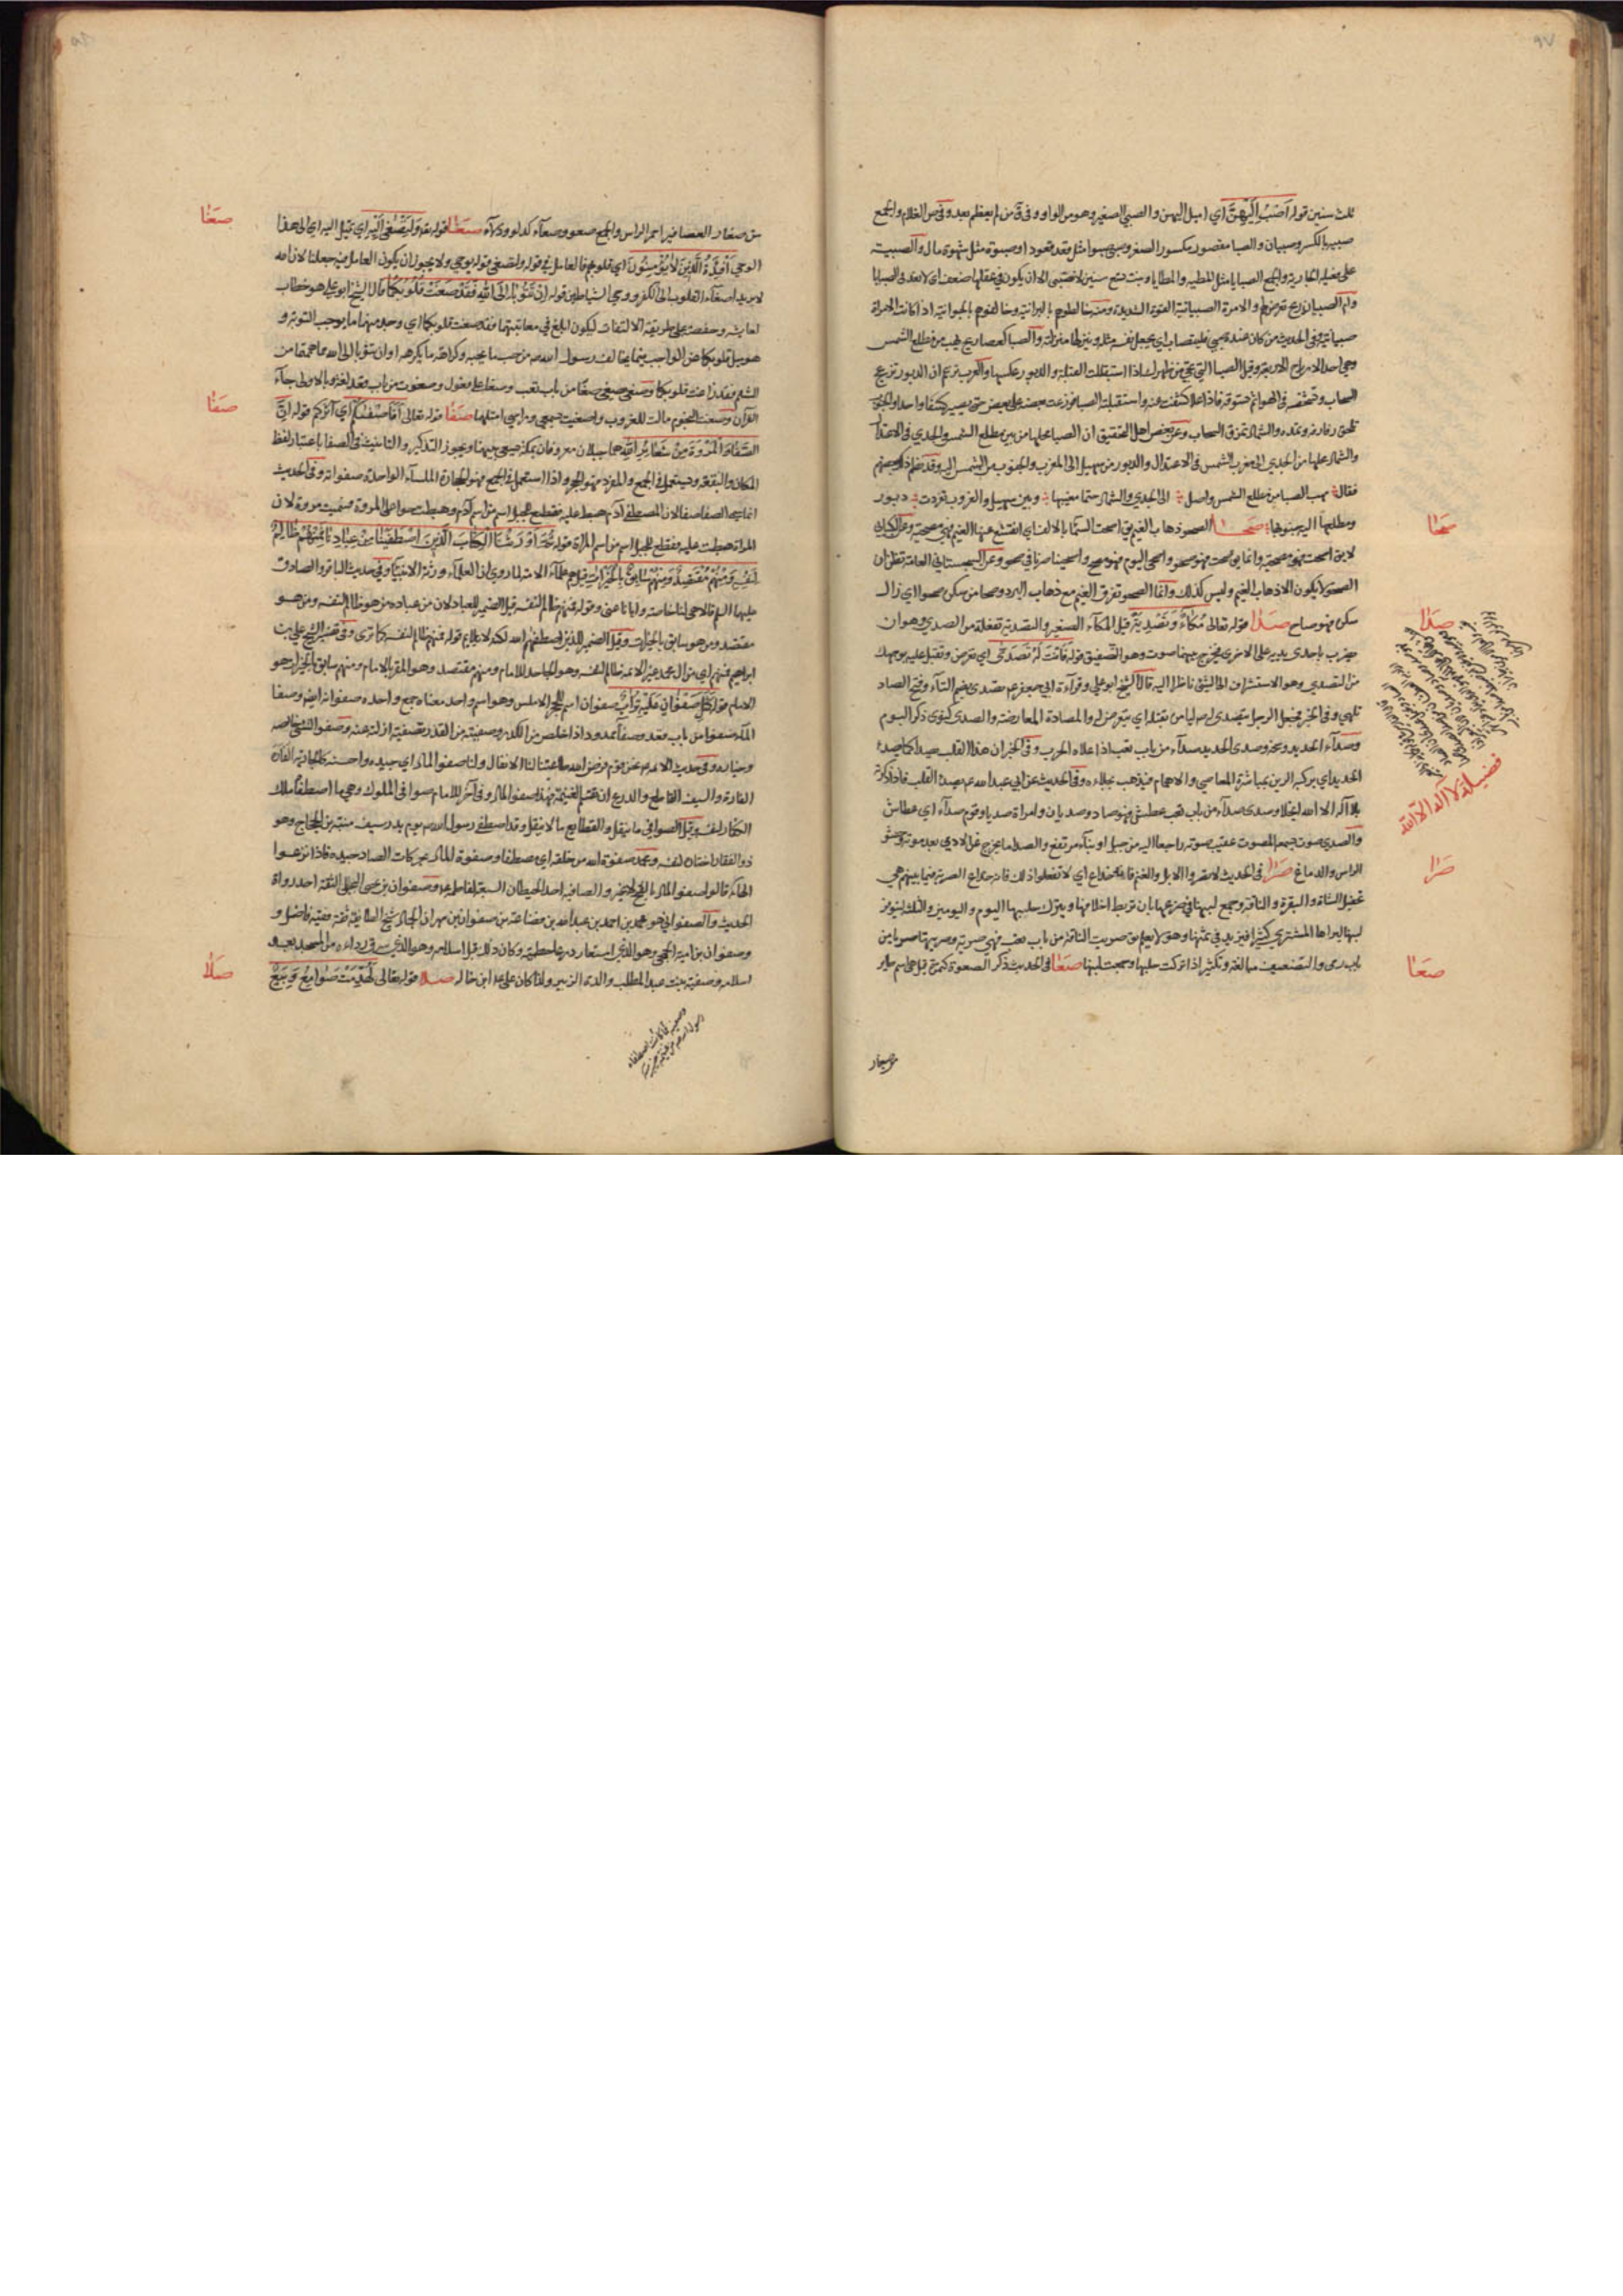 ٩٧
ثلث سنين قوله أَصْبُ إِلَيْهِنَّ أي اميل اليهن والصبي الصغير وهو من الواو وفي ق من لم يعظم بعد وفي ص الغلام والجمع
صبية بالكسر وصبيان والصبا مقصور مكسور الصغر وصبى صبوا مثل قعد قعودا وصبوة مثل شهوة مال والصبية
على فعيلة الجارية والجمع الصبايا مثل المطية والمطايا وبنت تسع سنين لا تستصبى الا ان يكون في عقلها ضعف اي لا تعد في الصبايا
وام الصبيان ريح تعرض لهم والامرة الصبيانية
صبيانية وفي الحديث من كان عنده صبي فليتصاب له اي يجعل نفسه مثله وينزلها منزلته والصبا كعصا ريح تهب من مطلع الشمس
وهي احد الارياح الاربعة وقيل الصبا التي تجئ من ظهرك اذا استقبلت القبلة والدبور عكسها والعرب تزعم ان الدبور تزعج
السحاب وتشخصه في الهواء ثم تسوقه فاذا علا كشفت عنه واستقبلته الصبا فوزعت بعضه على بعض حتى يصير كسفا واحدا والجنوب
تلحق روادفه وتمده والشمال تمزق السحاب وعن بعض اهل التحقيق ان الصبا محلها ما بين مطلع الشمس والجدي في الاعتدال
والشمال محلها من الجدي الى مغرب الشمس في الاعتدال والدبور من سهيل الى المغرب والجنوب من مطلع الشمس اليه وقد نظم ذلك بعضهم
فقال مهب الصبا من مطلع الشمس واصل الى الجدي والشمال حتى مغيبها وبين سهيل والغروب تفردت دبور
ومطلعها اليه جنوبها صحا الصحو ذهاب الغيم يق اصحت السماء بالالف اي انقشع عنها الغيم فهي مصحية وعن الكسائي
لا يق اصحت فهو مصحية وانما يق صحت فهو صحو واصحى اليوم فهو مصح واصحينا صرنا في صحو وعن السجستاني العامة تظن ان
الصحو لا يكون الا ذهاب الغيم وليس كذلك وانما الصحو تفرق الغيم مع ذهاب البرد وصحا من سكره صحوا اي زال
سكره فهو صاح صدا قوله تعالى مُكَاءً وَتَصْدِيَةً قيل المكاء الصفير والتصدية تفعلة من الصدى وهو ان
يضرب باحدى يديه على الاخرى فيخرج بينهما صوت وهو التصفيق قوله فَأَنْتَ لَهُ تَصَدَّى اي تعرض وتقبل عليه بوجهك
من التصدي وهو الاستشراف الى الشئ ناظرا اليه قال الشيخ ابو علي وقرآءة ابي جعفر ع تصدى بضم التآء وفتح الصاد
تلهى وفي الخبر فجعل الرجل يتصدى لرسول الله ليامر بقتله اي يتعرض له والمصاداة المعارضة والصدى كنوى ذكر البوم
وصدآء الحديد وسخه وصدى الحديد صدآء من باب تعب اذا علاه الجرب وفي الخبر ان هذا القلب يصدأ كما يصدأ
الحديد اي يركبه الرين بمباشرة المعاصي والاثام فيذهب بجلائه وفي الحديث عن ابي عبد الله ع يصدأ القلب فاذا ذكرته
بلا اله الا الله انجلا وصدى صدآء من باب تعب عطش فهو صاد وصديان وامراة صديا وقوم صدآء اي عطاش
والصدى صوت يسمعه المصوت عقيب صوته راجعا اليه من جبل او بناء مرتفع والصدا ما يخرج من الادمي بعد موته وحشو
الراس والدماغ صرا في الحديث لا تصروا الابل والغنم فانه خداع اي لا تفعلوا ذلك فانه خداع
تحفيل الشاة والبقرة والناقة وجمع لبنها في ضرعها بان تربط اخلافها ويترك حلبها اليوم واليومين والثلث ليتوفر
لبنها ليراها المشتري كثيرا فيزيد في ثمنها وهو لا يعلم يق صريت الناقة من باب تعب فهي صرية وصريتها صريا من
باب رمى والتضعيف مبالغة وتكثير اذا تركت حلبها وجمعت لبنها صعا في الحديث ذكر الصعوة كتمرة قيل هي اسم طاير
من صغار
صحا
صدا
فضيلة لا اله الا الله
صرا
صعا
من صغار العصافير احمر الراس والجمع صعو وصعآء كدلو ودلآء صغا قوله تع وَلِتَصْغَى إِلَيْهِ اي تميل اليه اي الى هذا
الوحي أَفْئِدَةُ الَّذِينَ لَا يُؤْمِنُونَ اي قلوبهم فالعامل في قوله ولتصغى قوله يوحي ولا يجوز ان يكون العامل فيه جعلنا لان الله
لا يريد اصغآء القلوب الى الكفر ووحي الشياطين قوله إِنْ تَتُوبَا إِلَى اللَّهِ فَقَدْ صَغَتْ قُلُوبُكُمَا قال الشيخ ابو علي هو خطاب
لعايشة وحفصة على طريقة الالتفات ليكون ابلغ في معاتبتهما فقد صغت قلوبكما اي وجد منهما ما يوجب التوبة و
هو ميل قلوبكما عن الواجب فيما يخالف رسول الله ص من حب ما يحبه وكراهة ما يكرهه او ان تتوبا الى الله مما هممتما من
السم فقد زاغت قلوبكما وصغى يصغى صغا من باب تعب وصغيا على فعول وصغوت من باب قعد لغة وبالاولى جآء
القرآن وصغت النجوم مالت للغروب واصغيت سمعي وراسي املتهما صفا قوله تعالى أَفَأَصْفَاكُمْ أي آثركم قوله إِنَّ
الصَّفَا وَالْمَرْوَةَ مِنْ شَعَائِرِ اللَّهِ هما جبلان معروفان بمكة يسعى بينهما ويجوز التذكير والتانيث في الصفا باعتبار لفظ
المكان والبقعة ويستعمل في الجمع والمفرد فهو الحجر واذا استعمل في الجمع فهو الحجارة الملسآء الواحدة صفوانة وفي الحديث
انما سمي الصفا صفا لان المصطفى آدم هبط عليه فقطع للجبل اسم من اسم آدم وهبطت حوا على المروة فسميت مروة لان
المراة هبطت عليه فقطع للجبل اسم من اسم المراة قوله ثُمَّ أَوْرَثْنَا الْكِتَابَ الَّذِينَ اصْطَفَيْنَا مِنْ عِبَادِنَا فَمِنْهُمْ ظَالِمٌ
لِنَفْسِهِ وَمِنْهُمْ مُقْتَصِدٌ وَمِنْهُمْ سَابِقٌ بِالْخَيْرَاتِ قيل هم علماء الامة لما روي ان العلمآء ورثة الانبيآء وفي حديث الباقر والصادق
عليهما السلام قالا هي لنا خاصة وايانا عنى وقوله فمنهم ظالم لنفسه قيل الضمير للعباد لان من عباده من هو ظالم لنفسه ومن هو
مقتصد ومن هو سابق بالخيرات وقيل الضمير للذين اصطفاهم الله لكنه لا يلائم قوله فمنهم ظالم لنفسه كما ترى وفي تفسير الشيخ علي بن
ابراهيم فمنهم اي من آل محمد غير الائمة ظالم لنفسه وهو الجاحد للامام ومنهم مقتصد وهو المقر بالامام ومنهم سابق بالخيرات هو
الامام قوله كَمَثَلِ صَفْوَانٍ عَلَيْهِ تُرَابٌ صفوان اسم للحجر الاملس وهو اسم واحد معناه جمع واحده صفوانة ايض وصفا
المآء صفوا من باب قعد وصفآء ممدود اذا خلص من الكدر وصفيته من القذر تصفية ازلته عنه وصفو الشئ خالصه
وخياره وفي حديث الائمة ع نحن قوم فرض الله طاعتنا لنا الانفال ولنا صفو المال اي جيده واحسنه كالجارية الفاره
والسيف القاطع والدرع ان تقسم الغنيمة فهذا صفو المال وفي آخر للامام صوافي الملوك وهي ما اصطفاه ملك
الكفار لنفسه وقيل الصوافي ما ينقل والقطايع ما لا ينقل وقد اصطفى رسول الله ص يوم بدر سيف منبه بن الحجاج وهو
ذو الفقار اختاره لنفسه ومحمد صفوة الله من خلقه اي مصطفاه وصفوة المال بحركات الصاد جيده فاذا نزعوا
الهاء قالوا صفو المال بالفتح لا غير والصافية احد الحيطان السبعة لفاطمة ع وصفوان بن يحيى البجلي الثقة احد رواة
الحديث والصفواني هو محمد بن احمد بن عبد الله بن قضاعة بن صفوان بن مهران الجمال شيخ الطائفة ثقة فقيه فاضل و
وصفوان بن امية الجمحي وهو الذي استعار درعا حطمية وكان ذلك قبل اسلامه وهو الذي سرق رداءه من المسجد بعد
اسلامه وصفية بنت عبد المطلب والدة الزبير ولذا كان علي ع ابن خاله صلا قوله تعالى لَهُدِّمَتْ صَوَامِعُ وَبِيَعٌ
صغا
صفا
صلا